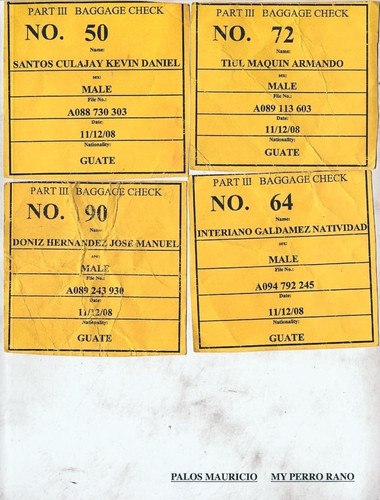 PART III BAGGAGE CHECK
NO. 50
Name:
SANTOS CULAJAY KEVIN DANIEL
sex:
MALE
File No.:
A088 730 303
Date:
11/12/08
Nationality:
GUATE
PART III BAGGAGE CHECK
NO. 72
Name:
TIUL MAQUIN ARMANDO
sex:
MALE
File No.:
A089 113 603
Date:
11/12/08
Nationality:
GUATE
PART III BAGGAGE CHECK
NO. 90
Name:
DONIZ HERNANDEZ JOSE MANUEL
sex:
MALE
File No.:
A089 243 930
Date:
11/12/08
Nationality:
GUATE
PART III BAGGAGE CHECK
NO. 64
Name:
INTERIANO GALDAMEZ NATIVIDAD
sex:
MALE
File No.:
A094 792 245
Date:
11/12/08
Nationality:
GUATE
PALOS MAURICIO MY PERRO RANO